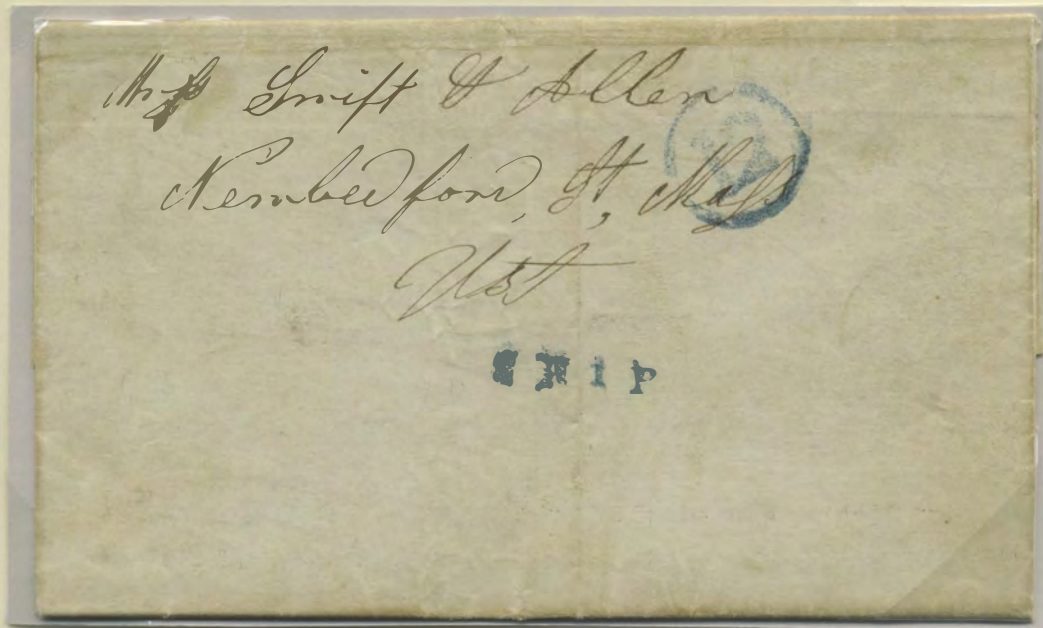 Messs Swift & Allen
Newbedford, St, Mass
USA
SHIP